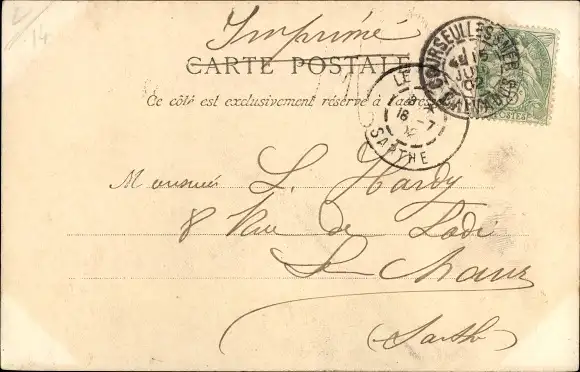 14
Imprimé
CARTE POSTALE
Ce côté est exclusivement réservé à l'adresse
COURSEULLES-SUR-MER
CALVADOS
15
JUIL
02
POSTES
LE
8
18 -7
02
SARTHE
Monsieur L. Hardy
8 Rue de Lodi
Le Mans
Sarthe